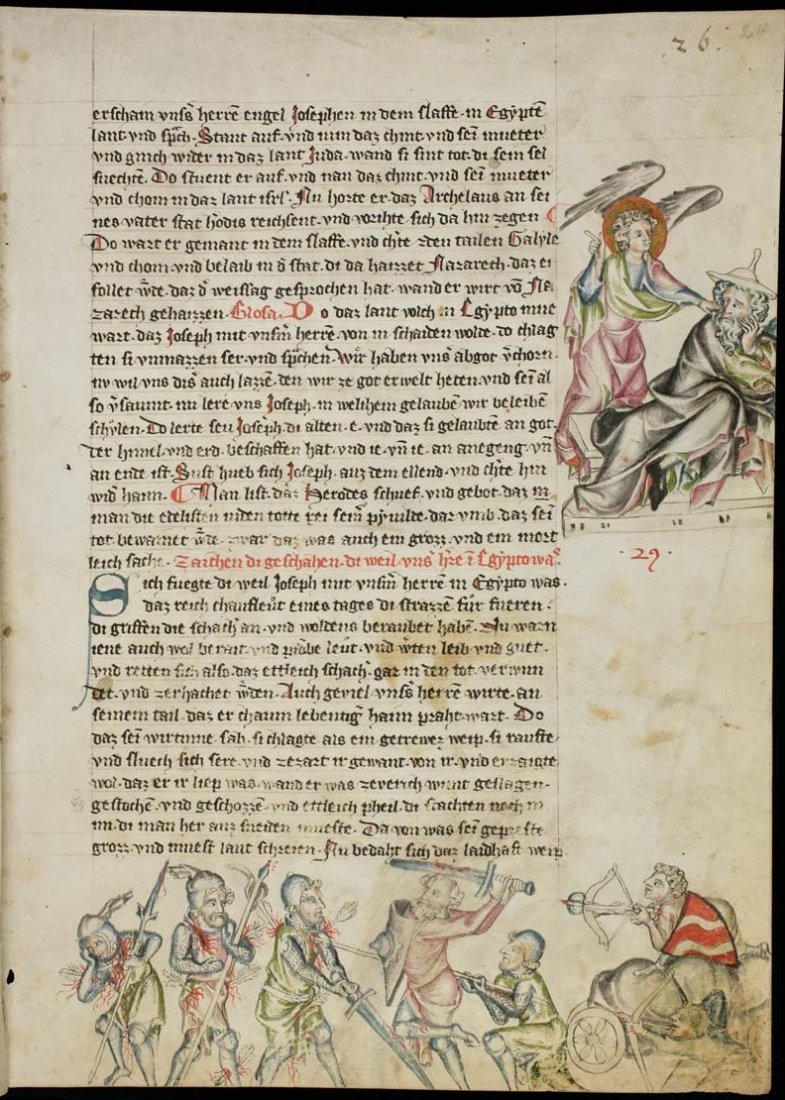 26.
24
erscham vnsˢ herrē engel Josephen in dem slaffe · in Egyptē
lant vnd sp̄ch · Stant auf · vnd nim daz chint · vnd sei᷑ mueter
vnd guich wider in daz lant Juda · wand si sint tot · di sein sel
suechtē · Do stuent er auf · vnd nan daz chint · vnd sei᷑ mueter
vnd chom in daz lant isrl̄ · Nu horte er · daz Archelaus an sei
nes vater stat hˢodis reichsent · vnd vorihte sich da hin zegen
Do wart er gemant in dem slaffe · vnd chˢte zden tailen Galyle
vnd chom · vnd belaib in dˢ stat · di da haizzet Nazareth · daz er
follet wˢde · daz dˢ weissag gesprochen hat · wand er wirt vō Na
zareth gehaizzen · Glosa · Do daz lant volch in Egypto inne
wart · daz Joseph mit vnsˢm herrē · von in schaiden wolde · do chlag
ten si vnmazzen ser · vnd sp̄chen · Wir haben vnsˢ abgot vˢchorn ·
nv wil vns disˢ auch lazzē · den wir ze got erwelt heten · vnd sei᷑ al
so vˢsaumt · nu lere vns Joseph · in welihem gelaubē wir beleibē
schvlen · Do lerte seu Josēph · di alten · e · vnd daz si gelaubtē an got ·
der himel · vnd erd · beschaffen hat · vnd ie · vn̄ ie · an anegeng · vn̄
an ende ist · Sust hueb sich Joseph · auz dem ellend · vnd chˢte hin
widˢ haim · Man list · daz Herodes schuef · vnd gebot · daz m̄
man die edelisten iuden totte · bei seim pymilde · dar vmb · daz sei᷑
tot bewainet wˢde · zwar daz was auch ein grozz · vnd ein mort
leich sache · Zaichen di geschahen · di weil vnsˢ hˢre ī Egypto waˢ ·
29
Sich fuegte di weil Joseph mit vnsˢm herrē in Egypto was ·
daz reich chaufleut eines tages di strazzē fur fueren ·
di griffen die schachˢ an · vnd woldens beraubet habē · Nu warn
iene auch wol berait · vnd pidˢbe leut · vnd wˢten leib vnd guet ·
vnd retten sich also · daz ettleich schachˢ · gar in den tot · verwun
det · vnd zerhachet wˢden · Auch geviel vnsˢs herrē wirte · an
seinem tail · daz er chaum lebentig haim praht wart · Do
daz sei᷑ wirtinne sah · si chlagte als ein getrewez weip · si raufte
vnd sluech sich sere · vnd zezart ir gewant · von ir · vnd erzaigte
wol · daz er ir liep was · wand er was zeverich wunt geslagen ·
gestochē · vnd geschozzē · vnd ettleich pheil · di stachten noch in
im · di man her auz sneiden mueste · Da von was sei᷑ gepreste
grozz · vnd muest laut schreien · Nu bedaht sich daz laidhaft weip